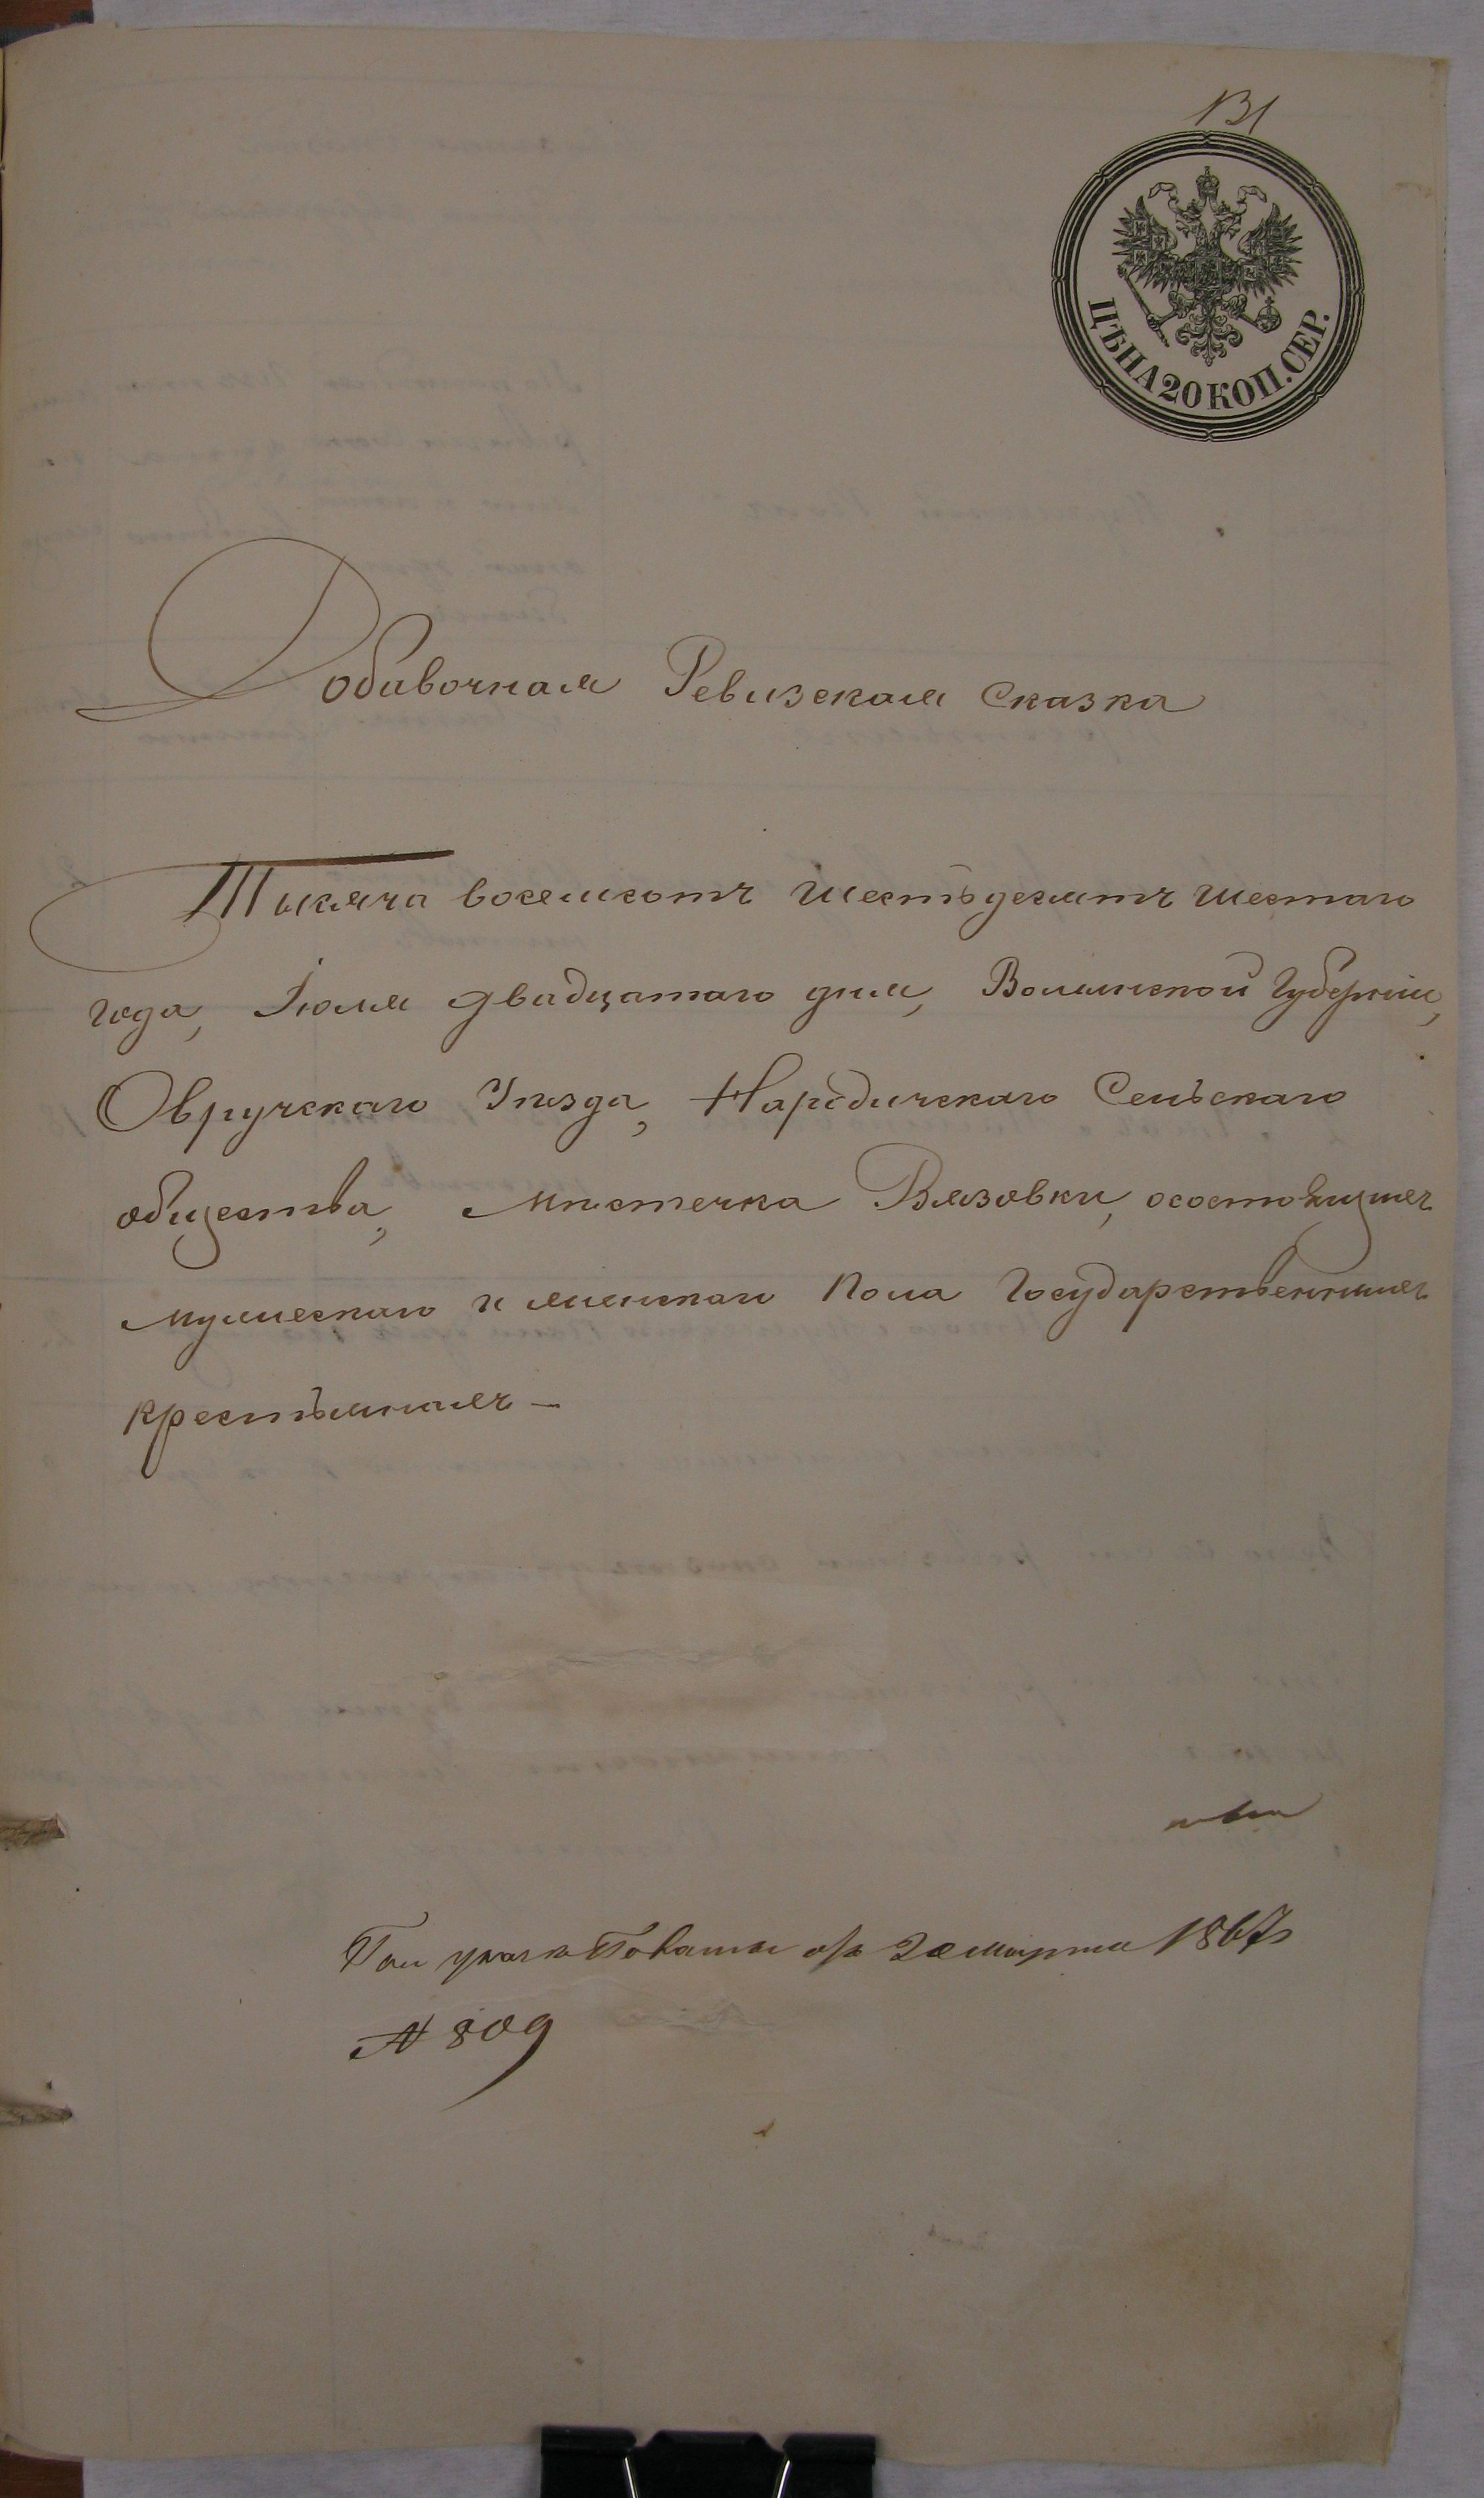 ЦѢНА 20 КОП. СЕР.
Добавочная Ревизская Сказка
Тысяча восемсотъ шестьдесятъ шестаго
года, Іюля двадцатаго дня, Волынской Губерніи,
Овручскаго Уѣзда, Народичскаго Сельскаго
общества, мѣстечка Вязовки, о состоящихъ
мужескаго и женскаго пола Государственныхъ
крестьянахъ —
При указѣ Палаты отъ 2 Марта 1867
№ 809